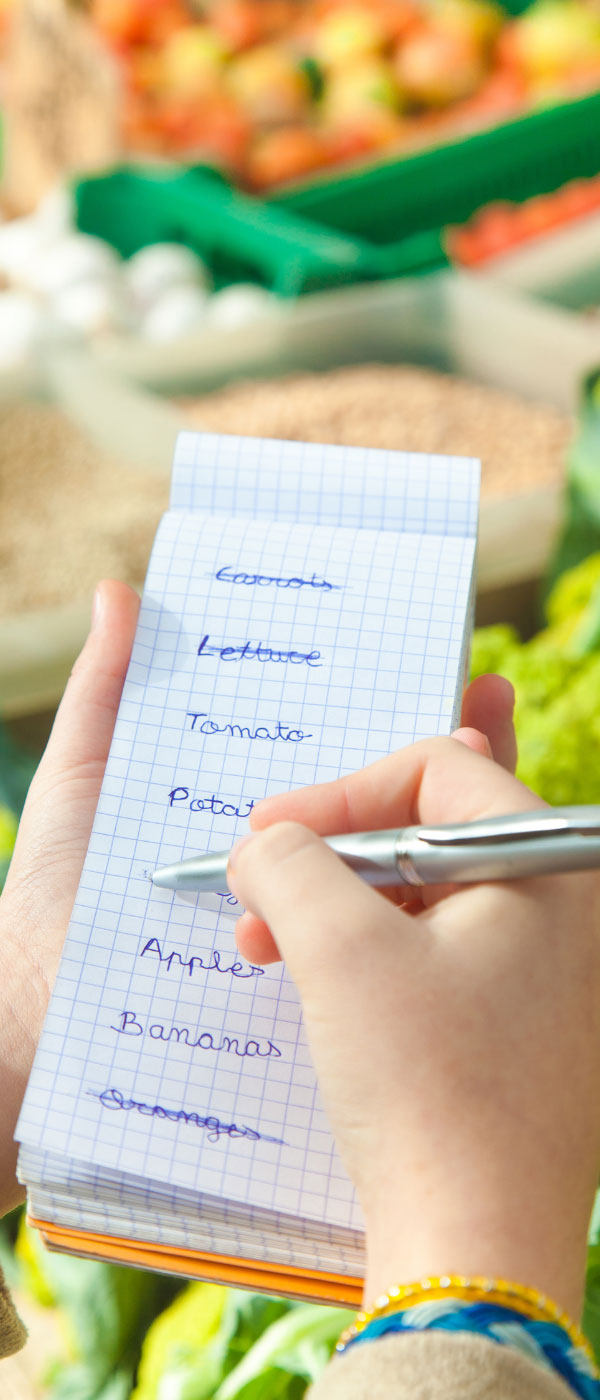 Carrots
Lettuce
Tomato
Potat
Apples
Bananas
Oranges